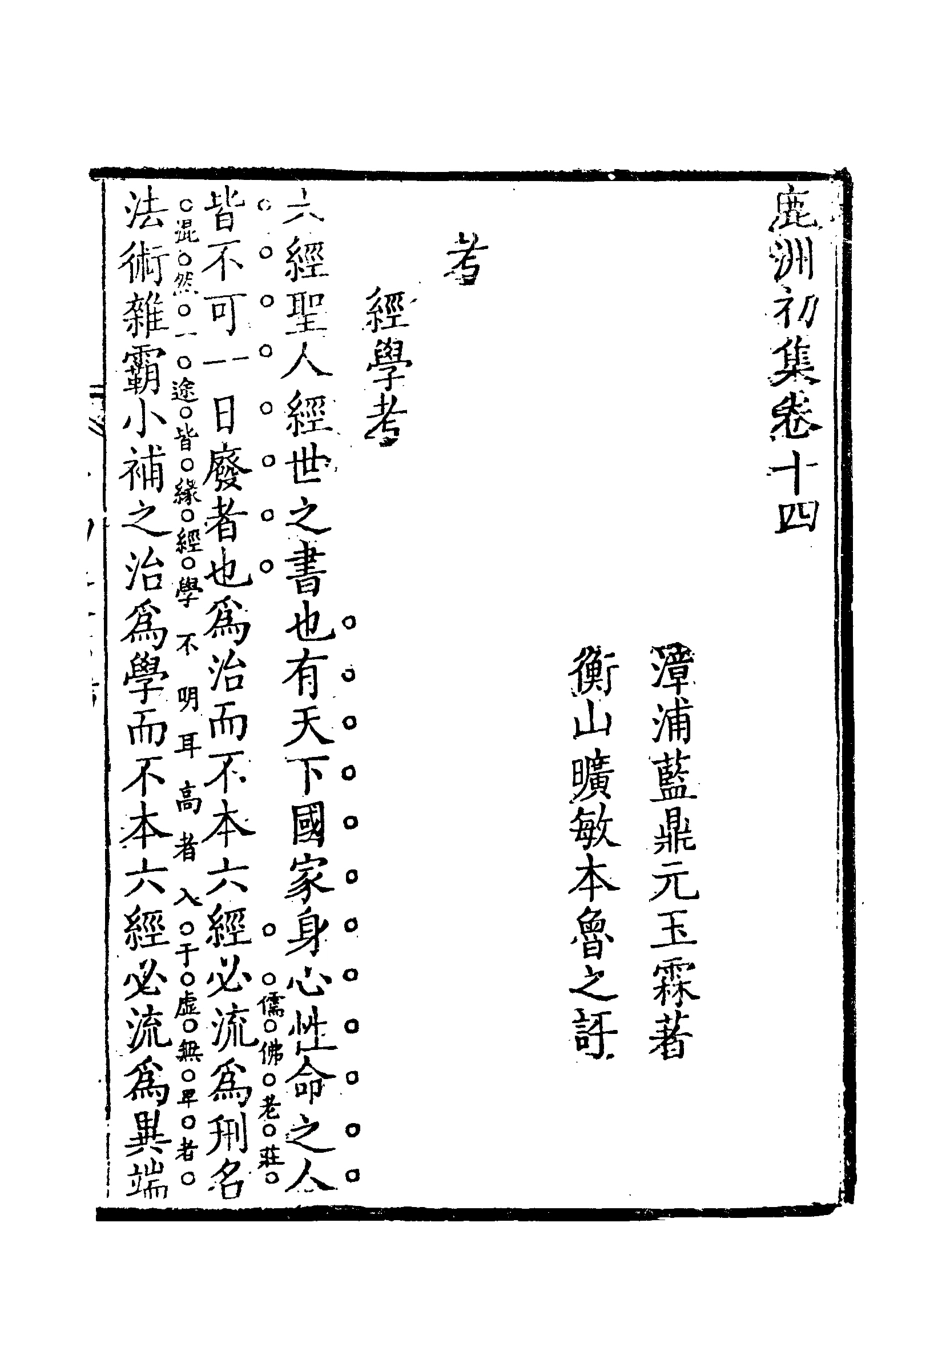 鹿洲初集卷十四
漳浦藍鼎元玉霖著
衡山曠敏本魯之評
考
經學考
六經聖人經世之書也有天下國家身心性命之人
儒佛老莊
皆不可一日廢者也爲治而不本六經必流爲刑名
混然一途皆緣經學不明耳高者入于虛無卑者
法術雜霸小補之治爲學而不本六經必流爲異端